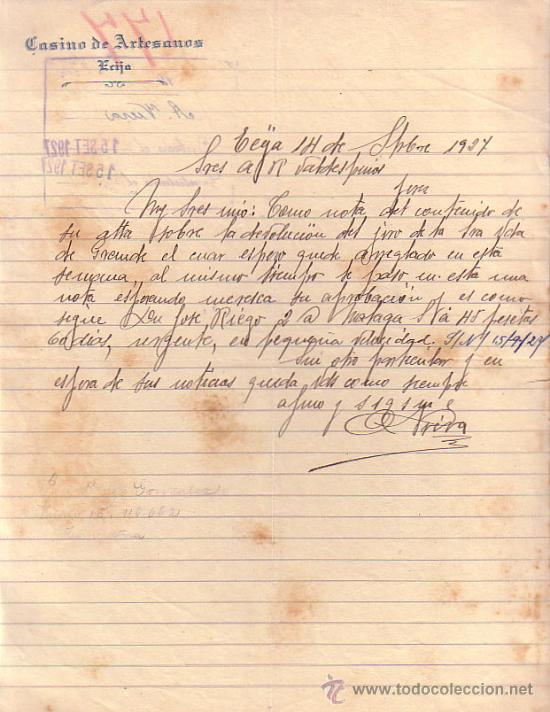 177
Casino de Artesanos
Ecija
A. R.
15 SET 1927
15 SET 1927
Ecija 14 de Stbre 1927
Sres A R Valdespino
Jerez
Muy Sres mio: Como nota del contenido de
su atta sobre la devolución del jiro de la Sra Vda
de Grande el cuar espero quede arreglado en esta
semana, al mismo tiempo le paso en esta una
nota esperando meresca su aprobación y es como
sigue Dn José Riego 2 @ Malaga S/ á 45 pesetas
60 dias, urgente, en pequeña velocidad. 15/9/27
Sin otro particular y en
espera de sus noticias queda Vds como siempre
afmo y s s q s m e
Gonzalez
www.todocoleccion.net